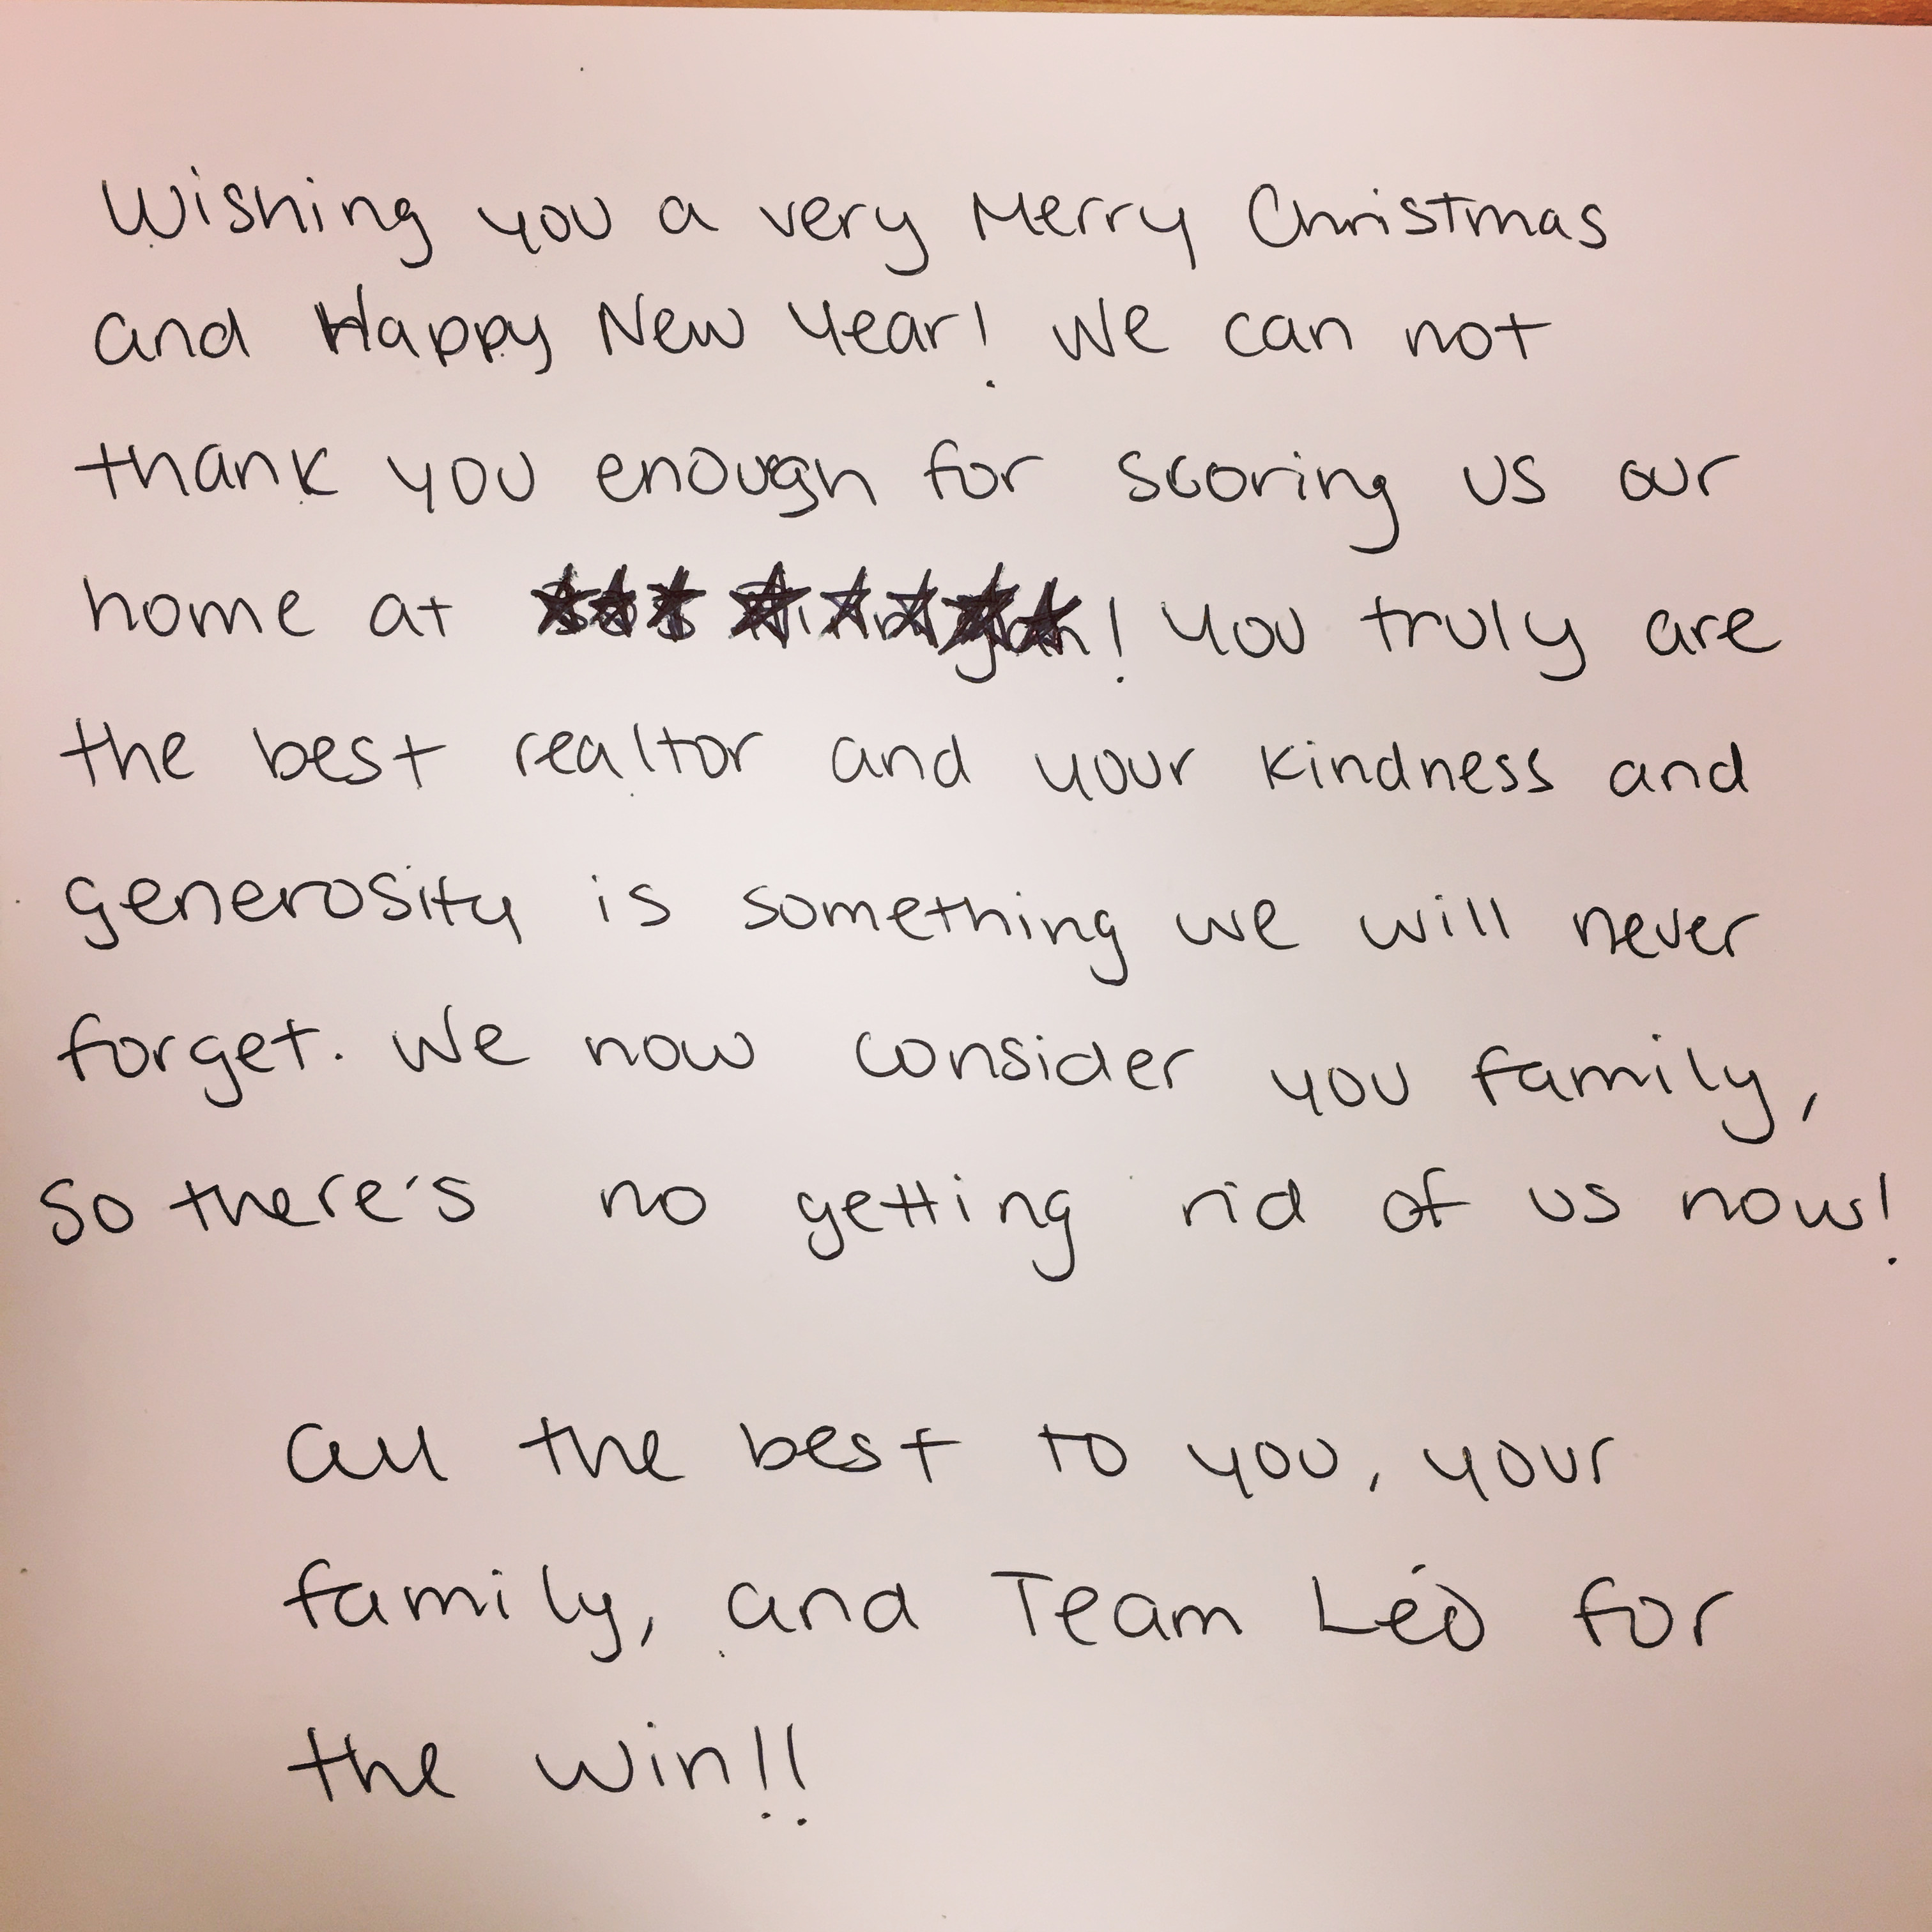 Wishing you a very Merry Christmas
and Happy New Year! We can not
thank you enough for scoring us our
home at ! You truly are
the best realtor and your kindness and
generosity is something we will never
forget. We now consider you family,
so there's no getting rid of us now!
All the best to you, your
family, and Team Léo for
the win!!